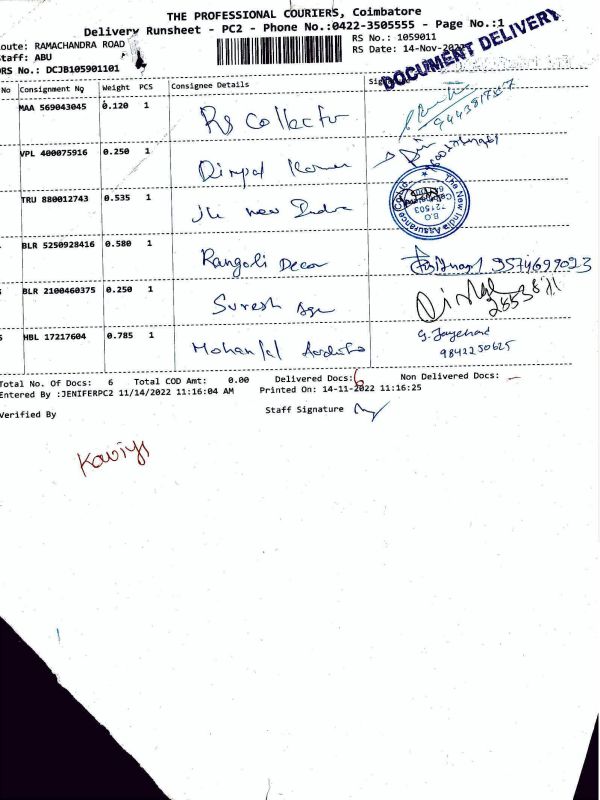 THE PROFESSIONAL COURIERS, Coimbatore
Delivery Runsheet - PC2 - Phone No:0422-3505555 - Page No.:1
oute: RAMACHANDRA ROAD RS No.: 1059011
Staff: ABU RS Date: 14-Nov-2022
DRS No.: DCJB105901101
DOCUMENT DELIVERY
No Consignment No Weight PCS Consignee Details
MAA 569043045 0.120 1 Rs Collector
VPL 400075916 0.250 1
TRU 880012743 0.535 1 new India
The New India Assurance Co. Ltd.
B.O.
721503
BLR 5250928416 0.580 1 Rangoli Decor 9574699023
BLR 2100460375 0.250 1 Suresh
HBL 17217604 0.785 1 Mohanlal G. Jaychand
9842250625
Total No. Of Docs: 6 Total COD Amt: 0.00 Delivered Docs: 6 Non Delivered Docs: -
Entered By :JENIFERPC2 11/14/2022 11:16:04 AM Printed On: 14-11-2022 11:16:25
Verified By Staff Signature
Kaviys